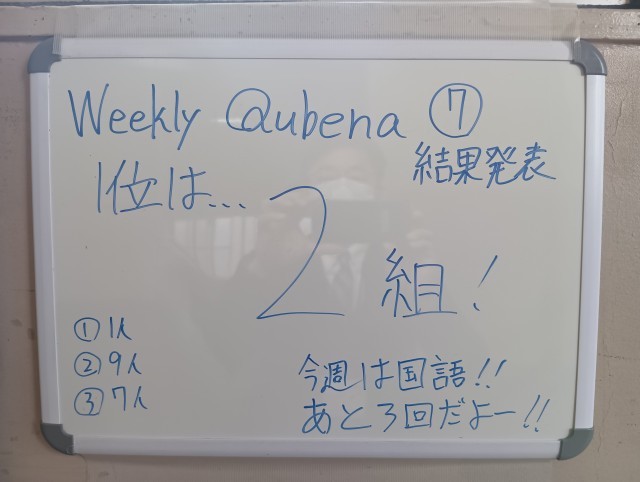 Weekly Qubena ⑦
結果発表
1位は...
2組!
① 1人
② 9人
③ 7人
今週は国語!!
あと3回だよー!!